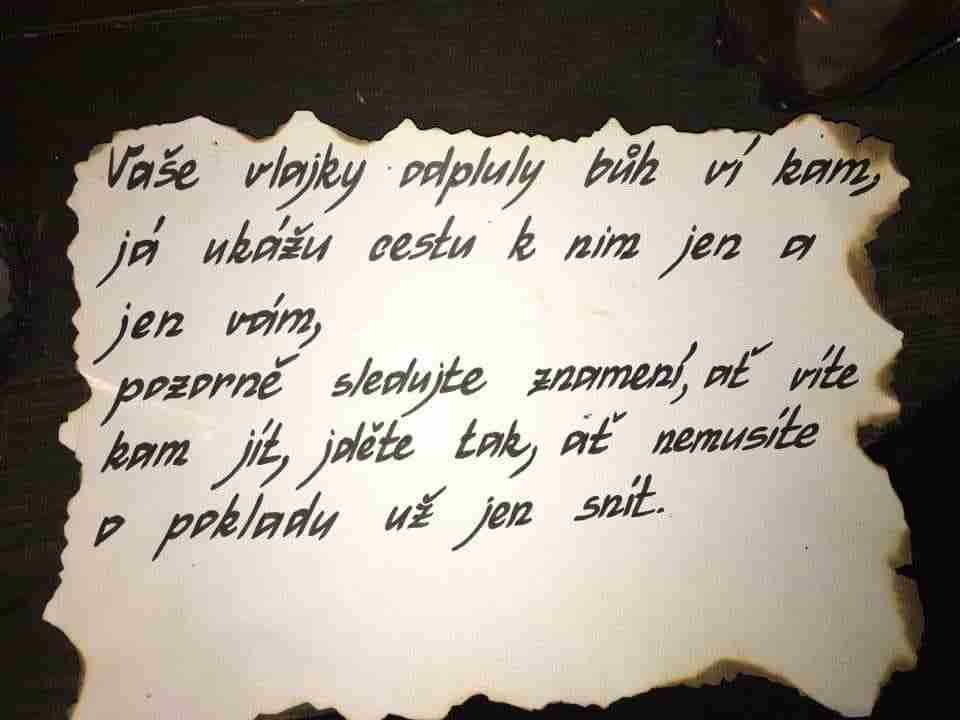 Vaše vlajky odpluly bůh ví kam,
já ukážu cestu k nim jen a
jen vám,
pozorně sledujte znamení, ať víte
kam jít, jděte tak, ať nemusíte
o pokladu už jen snít.